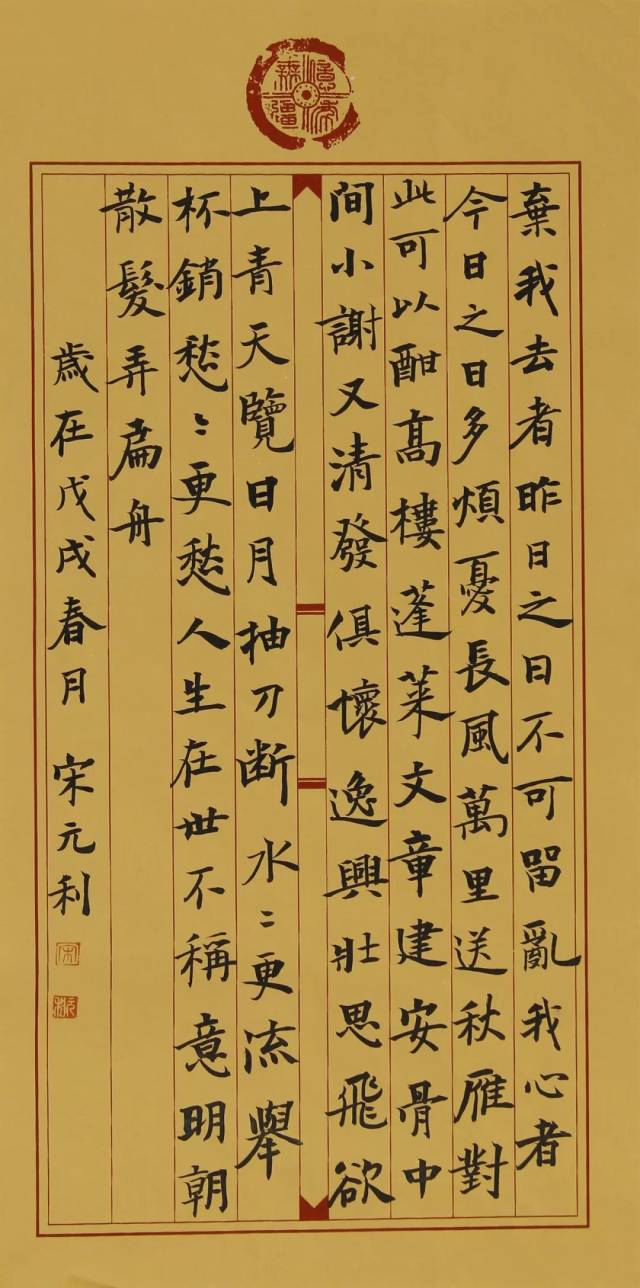 棄我去者昨日之日不可留亂我心者
今日之日多煩憂長風萬里送秋雁對
此可以酣髙樓蓬萊文章建安骨中
間小謝又清發俱懷逸興壯思飛欲
上青天覽日月抽刀断水〻更流舉
杯銷愁〻更愁人生在世不稱意明朝
散髮弄扁舟
歲在戊戌春月 宋元利
宋